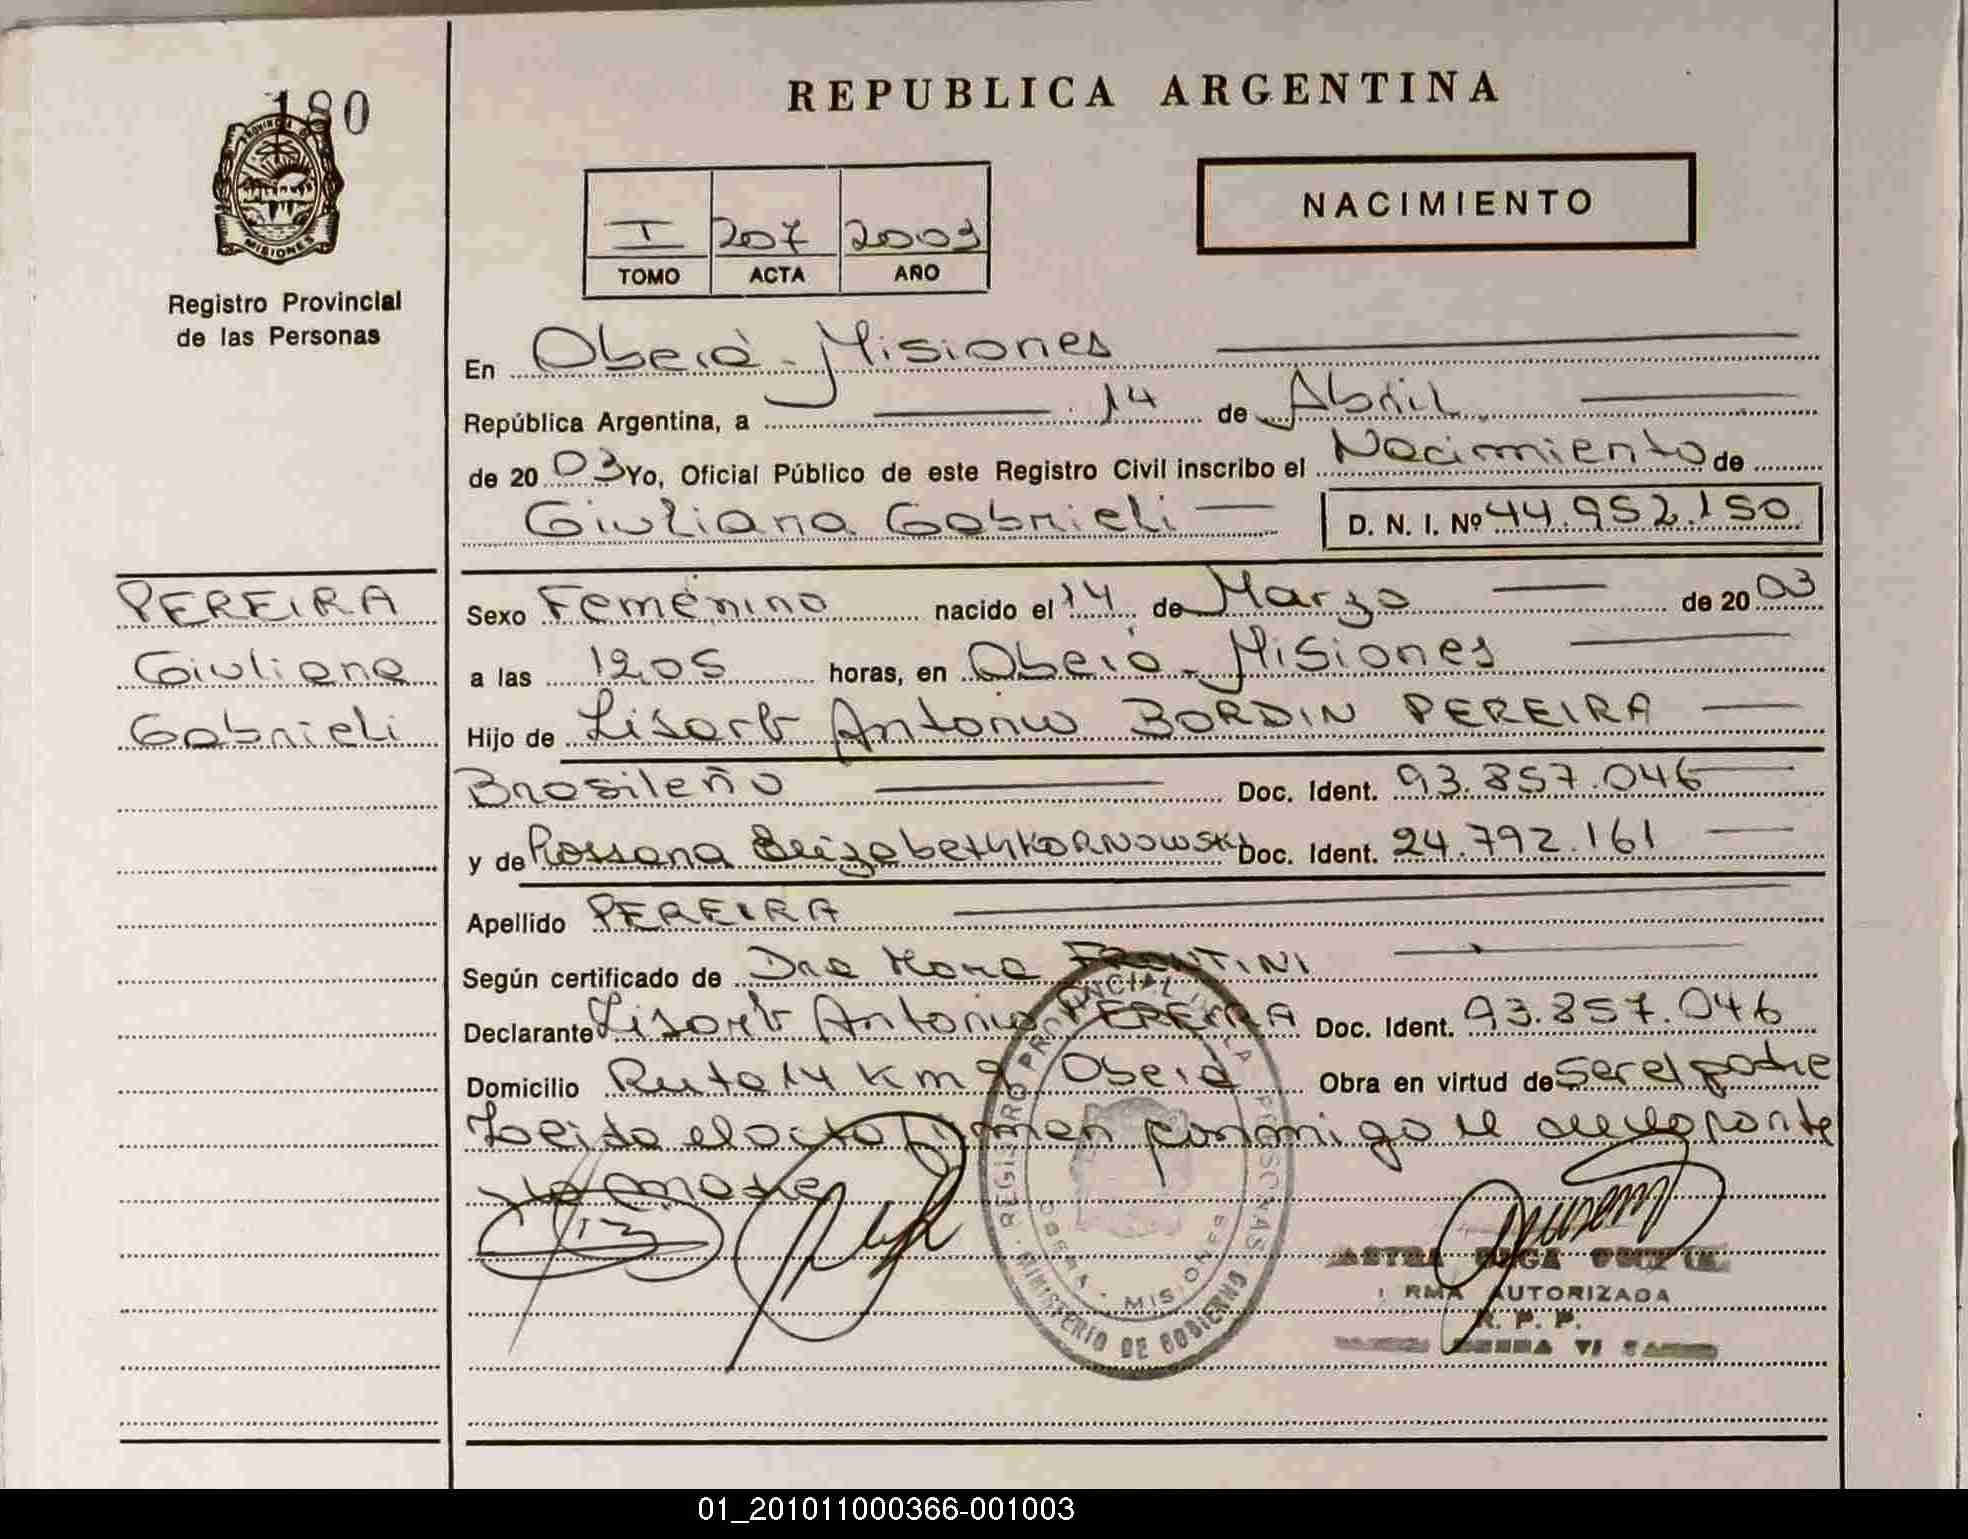 180
REPUBLICA ARGENTINA
NACIMIENTO
I 207 2003
TOMO ACTA AÑO
PROVINCIA DE
MISIONES
Registro Provincial
de las Personas
En Oberá - Misiones
República Argentina, a 14 de Abril
de 2003 Yo, Oficial Público de este Registro Civil inscribo el Nacimiento de
Giuliana Gabrieli D. N. I. Nº 44.952.150
PEREIRA
Giuliana
Gabrieli
Sexo Femenino nacido el 14 de Marzo de 2003
a las 12,05 horas, en Oberá - Misiones
Hijo de Lisarb Antonio BORDIN PEREIRA
Brasileño Doc. Ident. 93.857.046
y de Rossana Elizabeth KORNOWSKI Doc. Ident. 24.792.161
Apellido PEREIRA
Según certificado de Dra Mara FRONTINI
Declarante Lisarb Antonio PEREIRA Doc. Ident. 93.857.046
Domicilio Ruta 14 Km 9 Oberá Obra en virtud de Ser el padre
Leida el acta firman conmigo el declarante
y la madre
REGISTRO PROVINCIAL DE LAS PERSONAS
OBERA - MISIONES
MINISTERIO DE GOBIERNO
FIRMA AUTORIZADA
R. P. P.
01_201011000366-001003